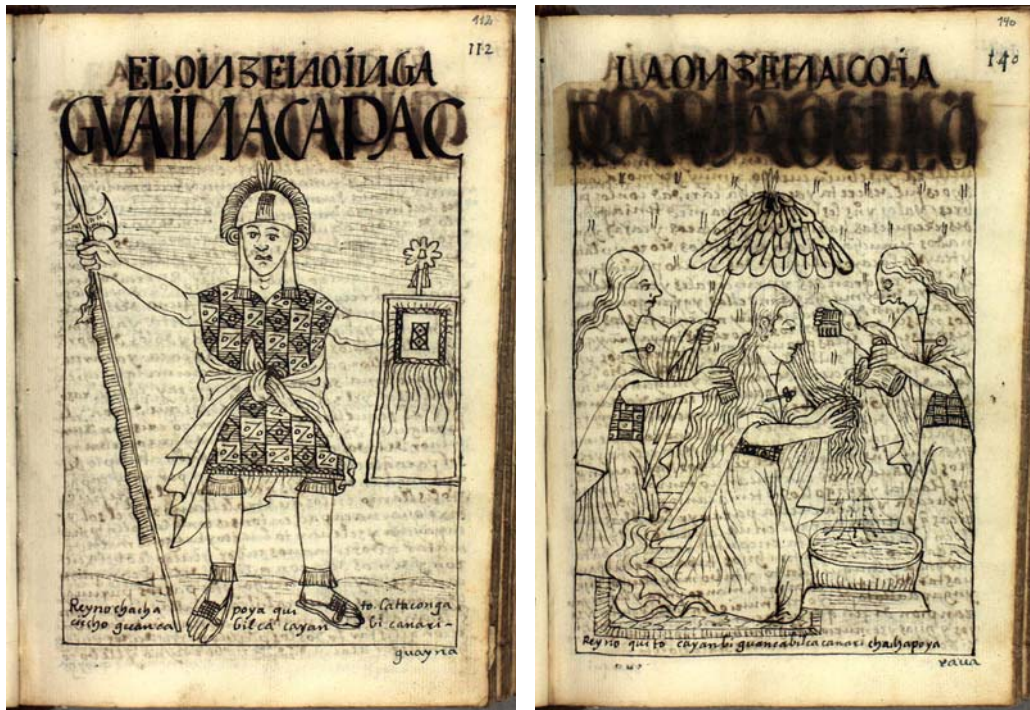 112
112
EL ONZENO INGA
GVAINACAPAC
Reyno chacha poya qui to. lataconga
cicho guanca bilca cayan bi canari-
guayna
140
140
LA ONZENA COIA
RAVA OCLLO
Reyno quito cayanbi guancabilca canari chachapoya
raua